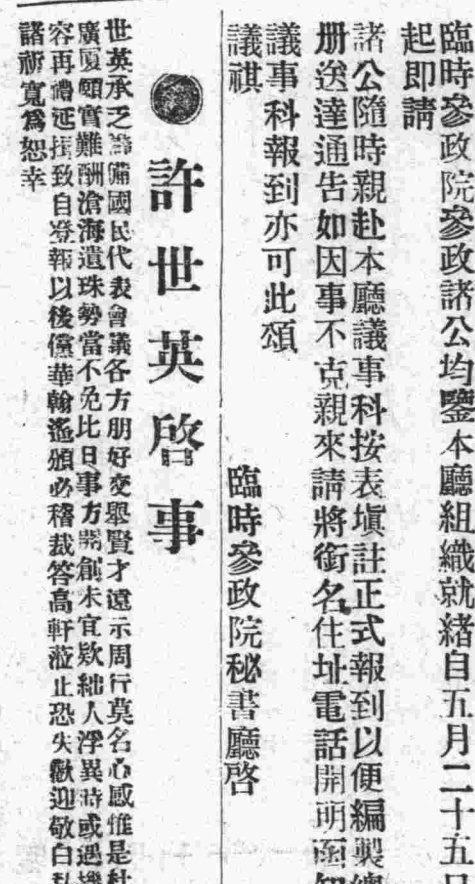 臨時參政院參政諸公均鑒本廳組織就緒自五月二十五日
起即請
諸公隨時親赴本廳議事科按表塡註正式報到以便編製
册送達通告如因事不克親來請將銜名住址電話開明函知
議事科報到亦可此頌
議祺
臨時參政院秘書廳啓
許世英啓事
世英承乏籌備國民代表會議各方朋好交舉賢才遠示周行莫名心感惟是杜
廣厦願實難酬滄海遺珠勢當不免比日事方開創未宜欵絀人浮異時或遇機
容再禮延掛致自登報以後儻華翰遙頒必稽裁答高軒蒞止恐失歡迎敬白私
諸祈寬爲恕幸